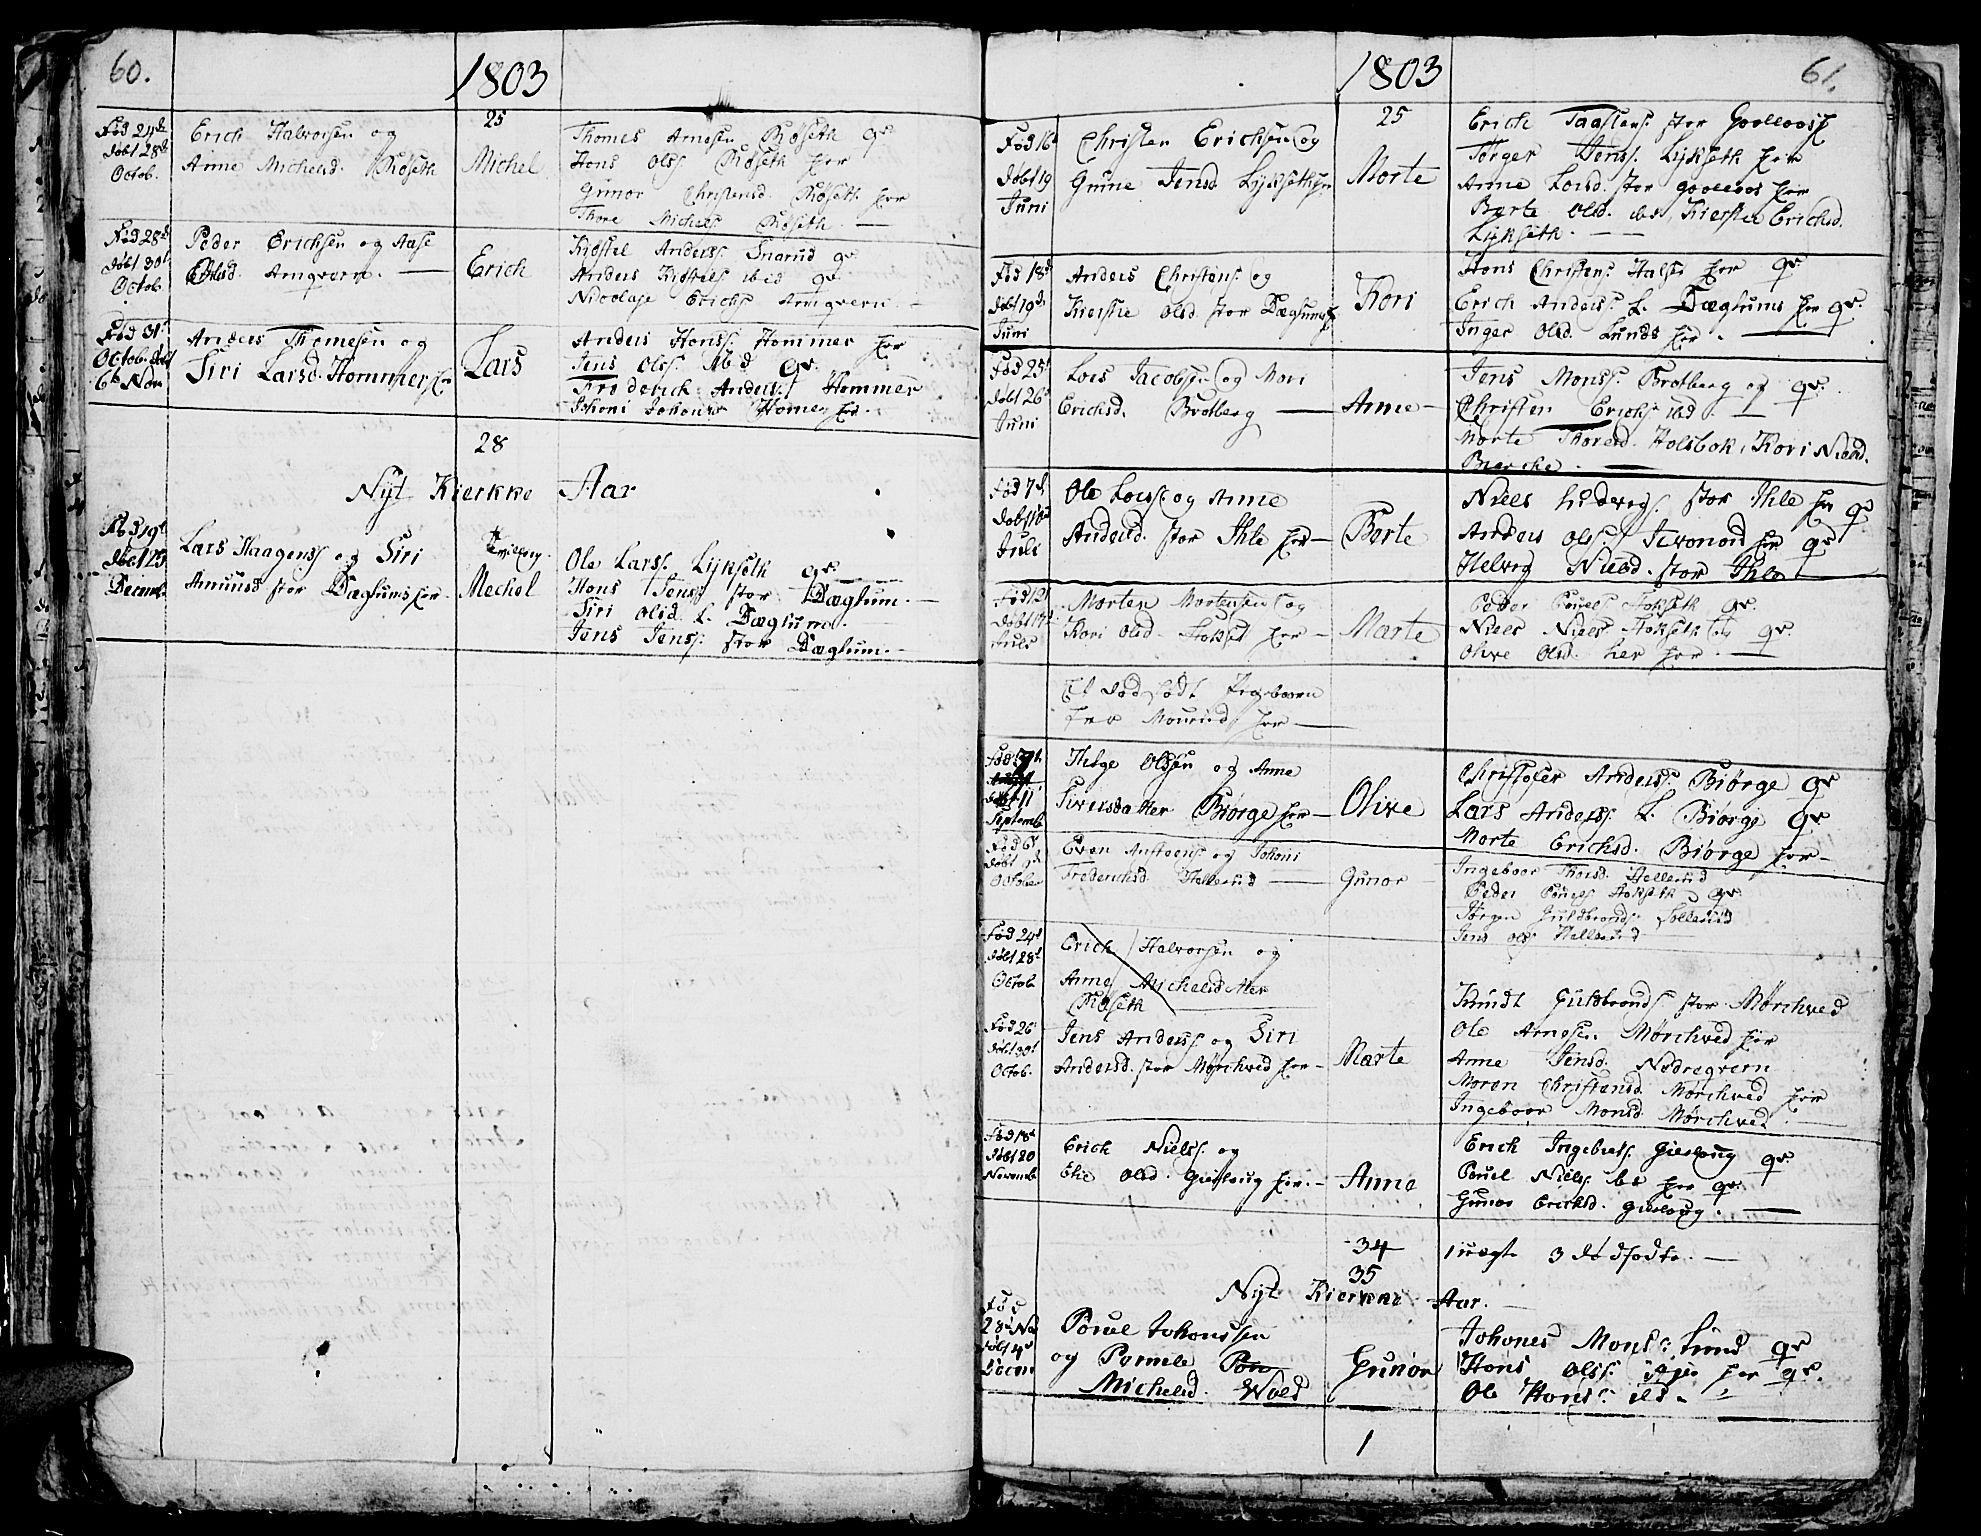 60.
1803
25
Fød 24de
døbt 28de
Octob.
Erich Halvorsen og
Anne Michelsd. Røseth
Michel
Thomes Arnesen Røseth gr
Hans Olss. Røseth her
Gunor Christensd. Røseth her
Thore Michels Røseth. —
Fød 28d
døbt 30t
Octob.
Peder Erichsen og Aase
Olsd. Amqvern. —
Erich
Kiøstel Anderss. Snarud gr
Anders Kiøstels ibid gr
Nicolaje Erichs Amqvern. -
Fød 31t
Octob. døbt
6t Nov
Anders Thomesen og
Siri Larsd. Hommer her
Lars
Anders Hanss. Hommer her
Jens Olss. ibid gr.
Frederich Anderss. Hommer
Johani Hommer her.
28
Nyt Kierkke Aar
Fød 19t
døbt 25
Decemb.
Lars Haagenss og Siri
Amunsd stor Dæglums her
Mechel
Ole Larss. Lykseth gr
Hans Jenss. stor Dæglum. —
Siri Olsd L. Dæglum.
Jens Jenss. stor Dæglum. —
61.
1803
25
Fød 16
døbt 19
Juni
Christen Erichsen og
Gune Jensd Lykseth her
Marte
Erich Taastens. stor Gaalaas
Torger Jenss. Lykseth her
Anne Larsd. stor Gaalaas her
Berte Olsd. ibd Kierstie Erichsd.
Lykseth. — —
Fød 18d
døbt 19d
Juni
Anders Christens. og
Kierstie Olsd stor Dæglums
Kari
Hans Christens. Hals her gr
Erich Anderss. L. Dæglums her gr.
Inger Olsd. Lunds her. —
Fød 25t
døbt 26t
Juni
Lars Jacobsen og Mari
Erichsd. Brotberg —
Anne —
Jens Monss. Brotberg og gr.
Christen Erichs ibd. —
Marte Thorsd. Holsbak, Kari Nielsd.
Biercke. —
Fød 7d
døbt 10d
Juli
Ole Larss. og Anne
Andersd. stor Ihle her —
Berte
Niels Ludevigs. stor Ihle her gr
Anders Olss. her gr
Helvig Nielsd. stor Ihle
Fød 12t
døbt 17
Juli
Morten Mortensen og
Kari Olsd. Stokset her —
Marte
Peder Povels Stokseth gr.
Niels Niels Stokseth gr.
Olive Olsd. her her. —
Et død født Pigebarn
fra Mourud her —
Fød 7
døbt 11
Septemb
Helge Olssen og Anne
Siversdatter Biørge her —
Olive
Christofer Anderss. Biørge gr
Lars Anderss. L. Biørge gr
Marte Erichsd. Biørge her —
Fød 6t
døbt 9d
October
Even Austens. og Johani
Frederichsd. Hellerud —
Gunor
Ingeboor Thorsd. Hellerud
Peder Povels Stokseth gr
Jørgen Guldbrands. Sollerud
Jens Ols Hellerud
Fød 24d
døbt 28t
Octob.
Erich Halvorsen og
Anne Michelsdatter
Røseth —
Fød 26t
døbt 30t
Octob.
Jens Anderss og Siri
Andersd. stor Mørchved her —
Marte
Knudt Guldbrands stor Mørchved
Ole Arnesen Mørchved her
Anne Jensd. Nødreqvern
Maren Christensd. Mørchved her
Ingeboor Monsd. Mørchved. —
Fød 18d
døbt 20
Novemb
Erich Nielss. og
Elie Olsd. Gieslaug her. —
Anne
Erich Ingebrets. Gieslaug gr.
Povel Niels. ibd her gr.
Gunor Erichsd. Gieslaug. —
34
35
1 uægte 3 dødfødte. —
Nyt Kierkke Aar. —
Fød
28d Nov
døbt 4d
Decem
Povel Johanssen
og Pernele Pov
Michelsd. Wold
Gunor
Johanes Mons: Lund gr
Hans Olss. her gr.
Ole Hans. ibd.
1